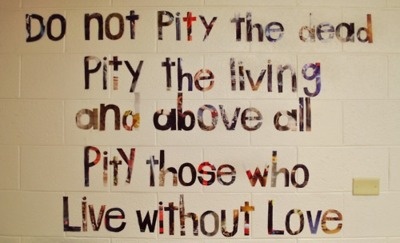 Do not Pity the dead
Pity the living
and above all
Pity those who
Live without Love